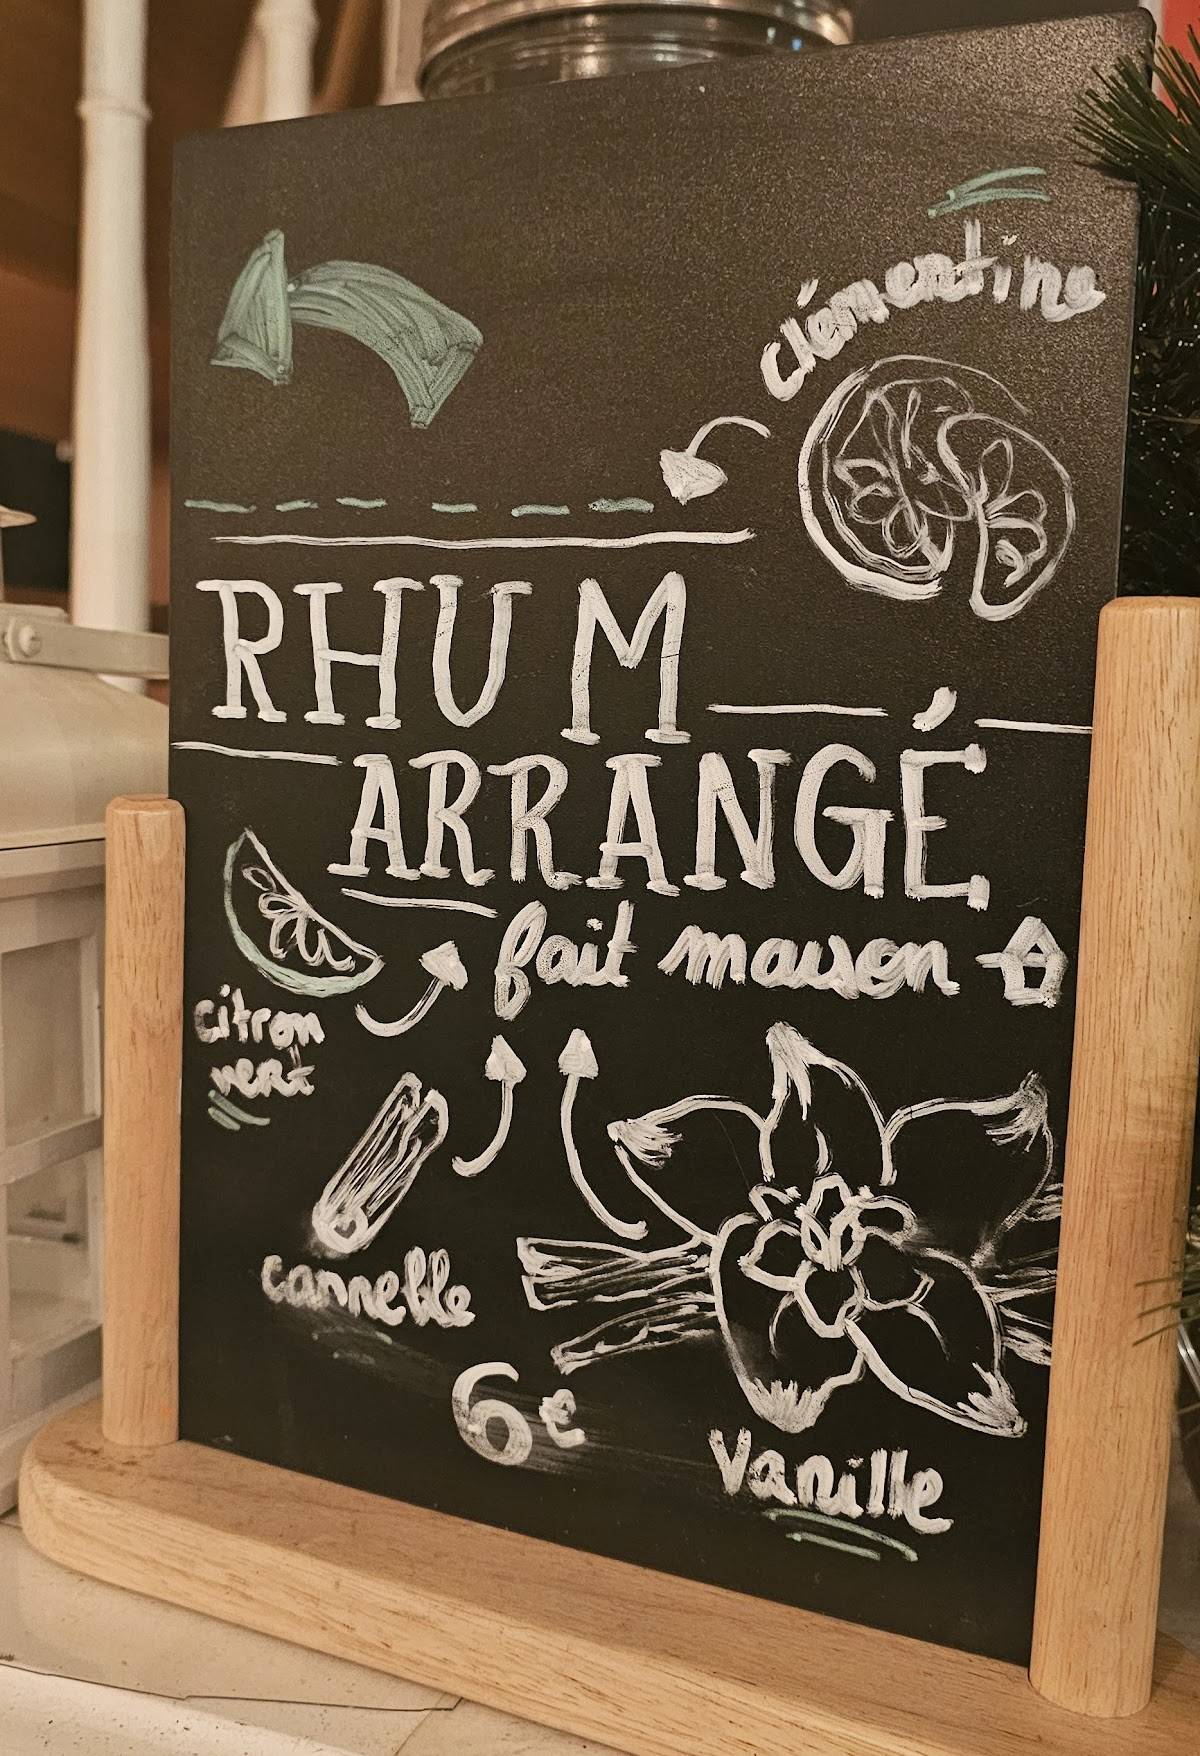 clémentine
RHUM
ARRANGÉ
fait maison
citron
vert
cannelle
6€
Vanille